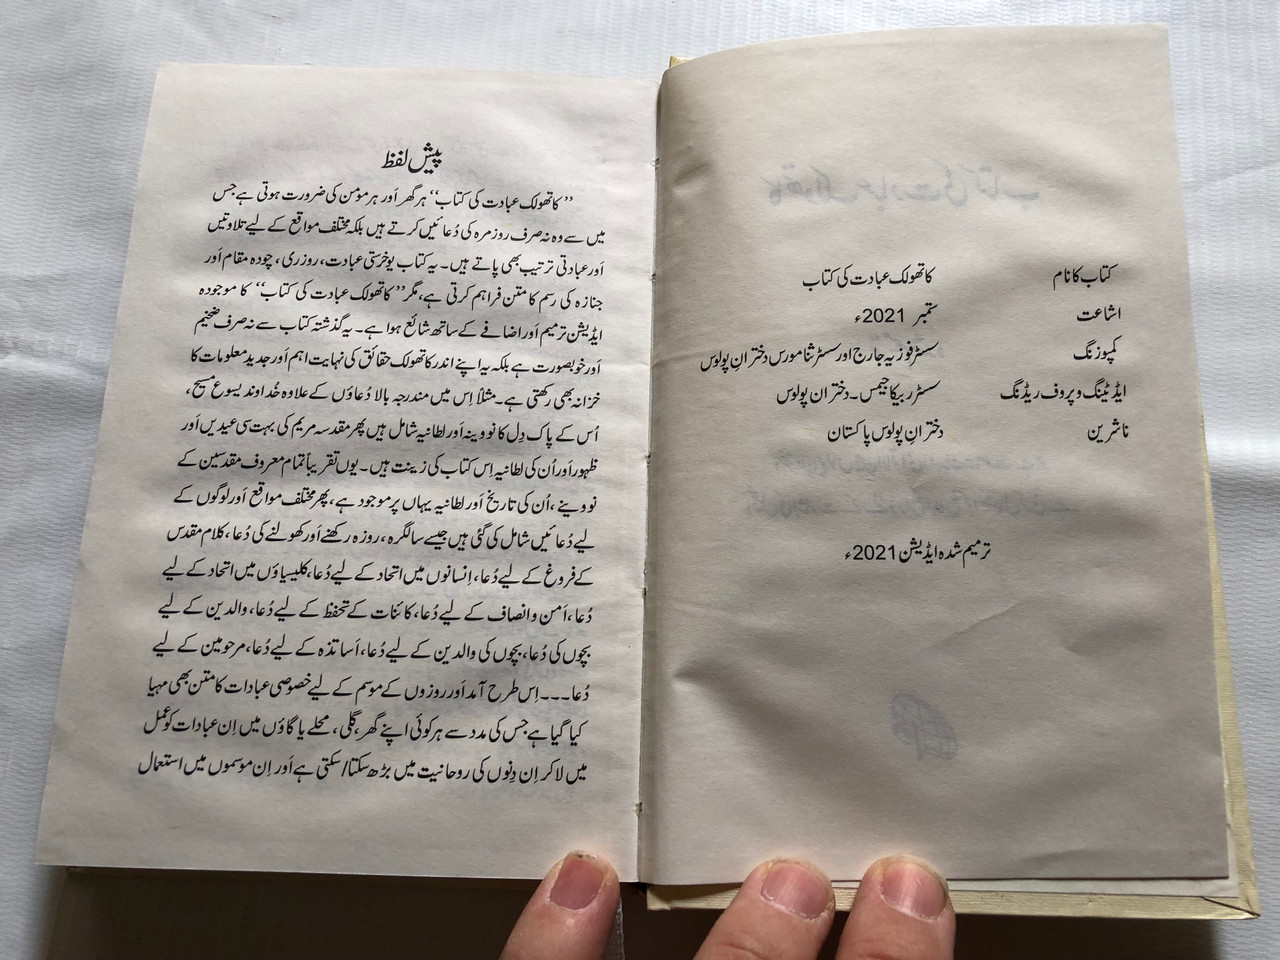 کتاب کا نام کاتھولک عبادت کی کتاب
اشاعت ستمبر 2021ء
کمپوزنگ سسٹر فوزیہ جارج اور سسٹر ثنا مورس دخترانِ پولوس
ایڈیٹنگ و پروف ریڈنگ سسٹر ربیکا جیمس۔ دخترانِ پولوس
ناشرین دخترانِ پولوس پاکستان
ترمیم شدہ ایڈیشن 2021ء
پیش لفظ
”کاتھولک عبادت کی کتاب“ ہر گھر اَور ہر مومن کی ضرورت ہوتی ہے جس
میں سے وہ نہ صرف روزمرہ کی دُعائیں کرتے ہیں بلکہ مختلف مواقع کے لیے تلاوتیں
اَور عبادتی ترتیب بھی پاتے ہیں۔ یہ کتاب یوخرستی عبادت، روزری، چودہ مقام اَور
جنازہ کی رسم کا متن فراہم کرتی ہے، مگر ”کاتھولک عبادت کی کتاب“ کا موجودہ
ایڈیشن ترمیم اَور اضافے کے ساتھ شائع ہوا ہے۔ یہ گذشتہ کتاب سے نہ صرف ضخیم
اَور خوبصورت ہے بلکہ یہ اپنے اندر کاتھولک حقائق کی نہایت اہم اَور جدید معلومات کا
خزانہ بھی رکھتی ہے۔ مثلاً اِس میں مندرجہ بالا دُعاؤں کے علاوہ خُداوند یسوع مسیح،
اُس کے پاک دِل کا نووینہ اَور لطانیہ شامل ہیں پھر مقدسہ مریم کی بہت سی عیدیں اَور
ظہور اَور اُن کی لطانیہ اِس کتاب کی زینت ہیں۔ یوں تقریباً تمام معروف مقدسین کے
نووینے، اُن کی تاریخ اَور لطانیہ یہاں پر موجود ہے، پھر مختلف مواقع اَور لوگوں کے
لیے دُعائیں شامل کی گئی ہیں جیسے سالگرہ، روزہ رکھنے اَور کھولنے کی دُعا، کلام مقدس
کے فروغ کے لیے دُعا، اِنسانوں میں اتحاد کے لیے دُعا، کلیسیاؤں میں اتحاد کے لیے
دُعا، اَمن و انصاف کے لیے دُعا، کائنات کے تحفظ کے لیے دُعا، والدین کے لیے
بچوں کی دُعا، بچوں کی والدین کے لیے دُعا، اَساتذہ کے لیے دُعا، مرحومین کے لیے
دُعا۔۔۔ اِس طرح آمد اَور روزوں کے موسم کے لیے خصوصی عبادات کا متن بھی مہیا
کیا گیا ہے جس کی مدد سے ہر کوئی اپنے گھر، گلی، محلے یا گاؤں میں اِن عبادات کو عمل
میں لا کر اِن دِنوں کی روحانیت میں بڑھ سکتا/سکتی ہے اَور اِن موسموں میں استعمال